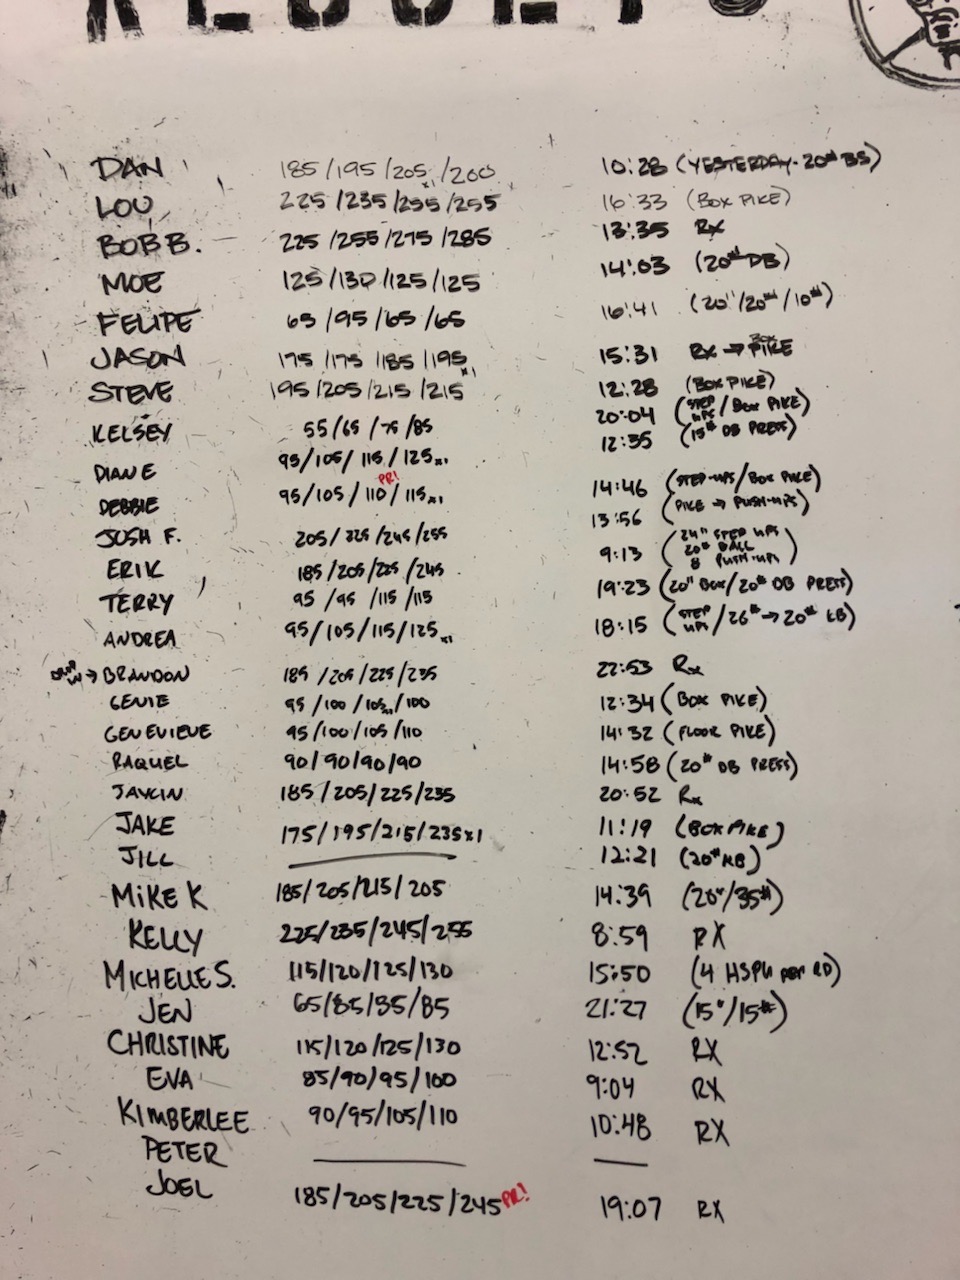 RESULTS
DAN 185/195/205x1/200 10:28 (YESTERDAY-20# BS)
LOU 225/235/255/255 16:33 (BOX PIKE)
BOB B. 225/255/275/285 13:35 Rx
MOE 125/130/125/125 14:03 (20# DB)
FELIPE 65/95/65/65 16:41 (20"/20#/10#)
JASON 175/175/185/195x1 15:31 Rx → BOX PIKE
STEVE 195/205/215/215 12:28 (BOX PIKE)
KELSEY 55/65/75/85 20:04 (STEP UPS/BOX PIKE)
DIANE 95/105/115/125x1 12:35 (15# DB PRESS)
PR!
DEBBIE 95/105/110/115x1 14:46 (STEP-UPS/BOX PIKE)
JOSH F. 205/225/245/255 13:56 (PIKE → PUSH-UPS)
ERIK 185/205/225/245 9:13 (24" STEP UPS 20# BALL 8 PUSH-UPS)
TERRY 95/95/115/115 19:23 (20" BOX/20# DB PRESS)
ANDREA 95/105/115/125x1 18:15 (STEP UPS/26# → 20# KB)
DROP IN → BRANDON 185/205/225/235 22:53 Rx
GENIE 95/100/105x1/100 12:34 (BOX PIKE)
GENEVIEVE 95/100/105/110 14:32 (FLOOR PIKE)
RAQUEL 90/90/90/90 14:58 (20# DB PRESS)
JAYCIN 185/205/225/235 20:52 Rx
JAKE 175/195/215/235x1 11:19 (BOX PIKE)
JILL 12:21 (20# KB)
MIKE K 185/205/215/205 14:39 (20"/35#)
KELLY 225/235/245/255 8:59 RX
MICHELLE S. 115/120/125/130 15:50 (4 HSPU per RD)
JEN 65/85/85/85 21:27 (15"/15#)
CHRISTINE 115/120/125/130 12:52 RX
EVA 85/90/95/100 9:04 RX
KIMBERLEE 90/95/105/110 10:48 RX
PETER
JOEL 185/205/225/245 PR! 19:07 RX